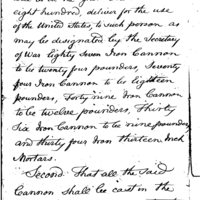 eight hundred, deliver for the use
of the United States, to such person as
may be designated by the Secretary
of War Eighty Seven Iron Cannon
to be twenty four pounders, Seventy
four Iron Cannon to be Eighteen
pounders, Forty nine Iron Cannon
to be twelve pounders, Thirty
Six Iron Cannon to be nine pounders
and thirty four Iron thirteen Inch
Mortars.
Second. That all the said
Cannon Shall be cast in the